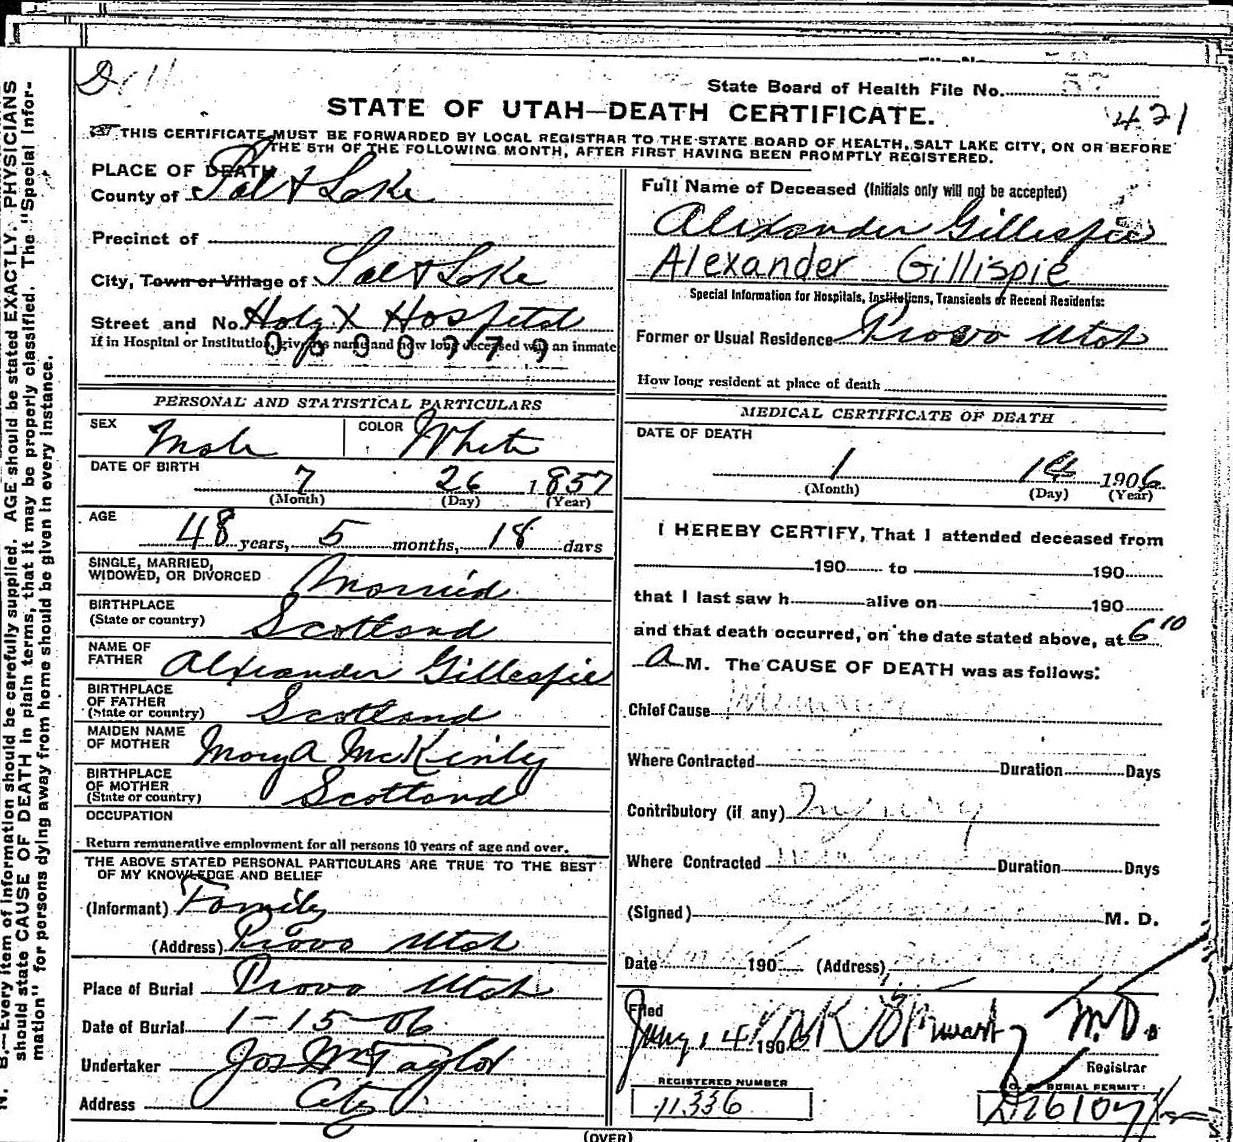 State Board of Health File No.
STATE OF UTAH—DEATH CERTIFICATE.
421
THIS CERTIFICATE MUST BE FORWARDED BY LOCAL REGISTRAR TO THE STATE BOARD OF HEALTH, SALT LAKE CITY, ON OR BEFORE
THE 5TH OF THE FOLLOWING MONTH, AFTER FIRST HAVING BEEN PROMPTLY REGISTERED.
PLACE OF DEATH
County of Salt Lake
Precinct of
City, Town or Village of Salt Lake
Street and No. Holy X Hospital
If in Hospital or Institution, give its name and how long deceased was an inmate
PERSONAL AND STATISTICAL PARTICULARS
SEX Male COLOR White
DATE OF BIRTH
7 26 1857
(Month) (Day) (Year)
AGE
48 years, 5 months, 18 days
SINGLE, MARRIED,
WIDOWED, OR DIVORCED Married
BIRTHPLACE
(State or country) Scotland
NAME OF
FATHER Alexander Gillespie
BIRTHPLACE
OF FATHER
(State or country) Scotland
MAIDEN NAME
OF MOTHER Mary A McKinly
BIRTHPLACE
OF MOTHER
(State or country) Scotland
OCCUPATION
Return remunerative employment for all persons 10 years of age and over.
THE ABOVE STATED PERSONAL PARTICULARS ARE TRUE TO THE BEST
OF MY KNOWLEDGE AND BELIEF
(Informant) Family
(Address) Provo Utah
Place of Burial Provo Utah
Date of Burial 1-15-06
Undertaker Jos Wm Taylor
Address City
Full Name of Deceased (Initials only will not be accepted)
Alexander Gillespie
Alexander Gillispie
Special Information for Hospitals, Institutions, Transients or Recent Residents:
Former or Usual Residence Provo Utah
How long resident at place of death
MEDICAL CERTIFICATE OF DEATH
DATE OF DEATH
1 14 1906
(Month) (Day) (Year)
I HEREBY CERTIFY, That I attended deceased from
190 to 190
that I last saw h alive on 190
and that death occurred, on the date stated above, at 6 10
A M. The CAUSE OF DEATH was as follows:
Chief Cause
Where Contracted Duration Days
Contributory (if any) Injury
Where Contracted Duration Days
(Signed) M. D.
Date 190 (Address)
Filed
Jany. 14 1906 M.D.
Registrar
REGISTERED NUMBER
BURIAL PERMIT
11336
(OVER)
N. B.—Every item of information should be carefully supplied. AGE should be stated EXACTLY. PHYSICIANS
should state CAUSE OF DEATH in plain terms, that it may be properly classified. The "Special Infor-
mation" for persons dying away from home should be given in every instance.